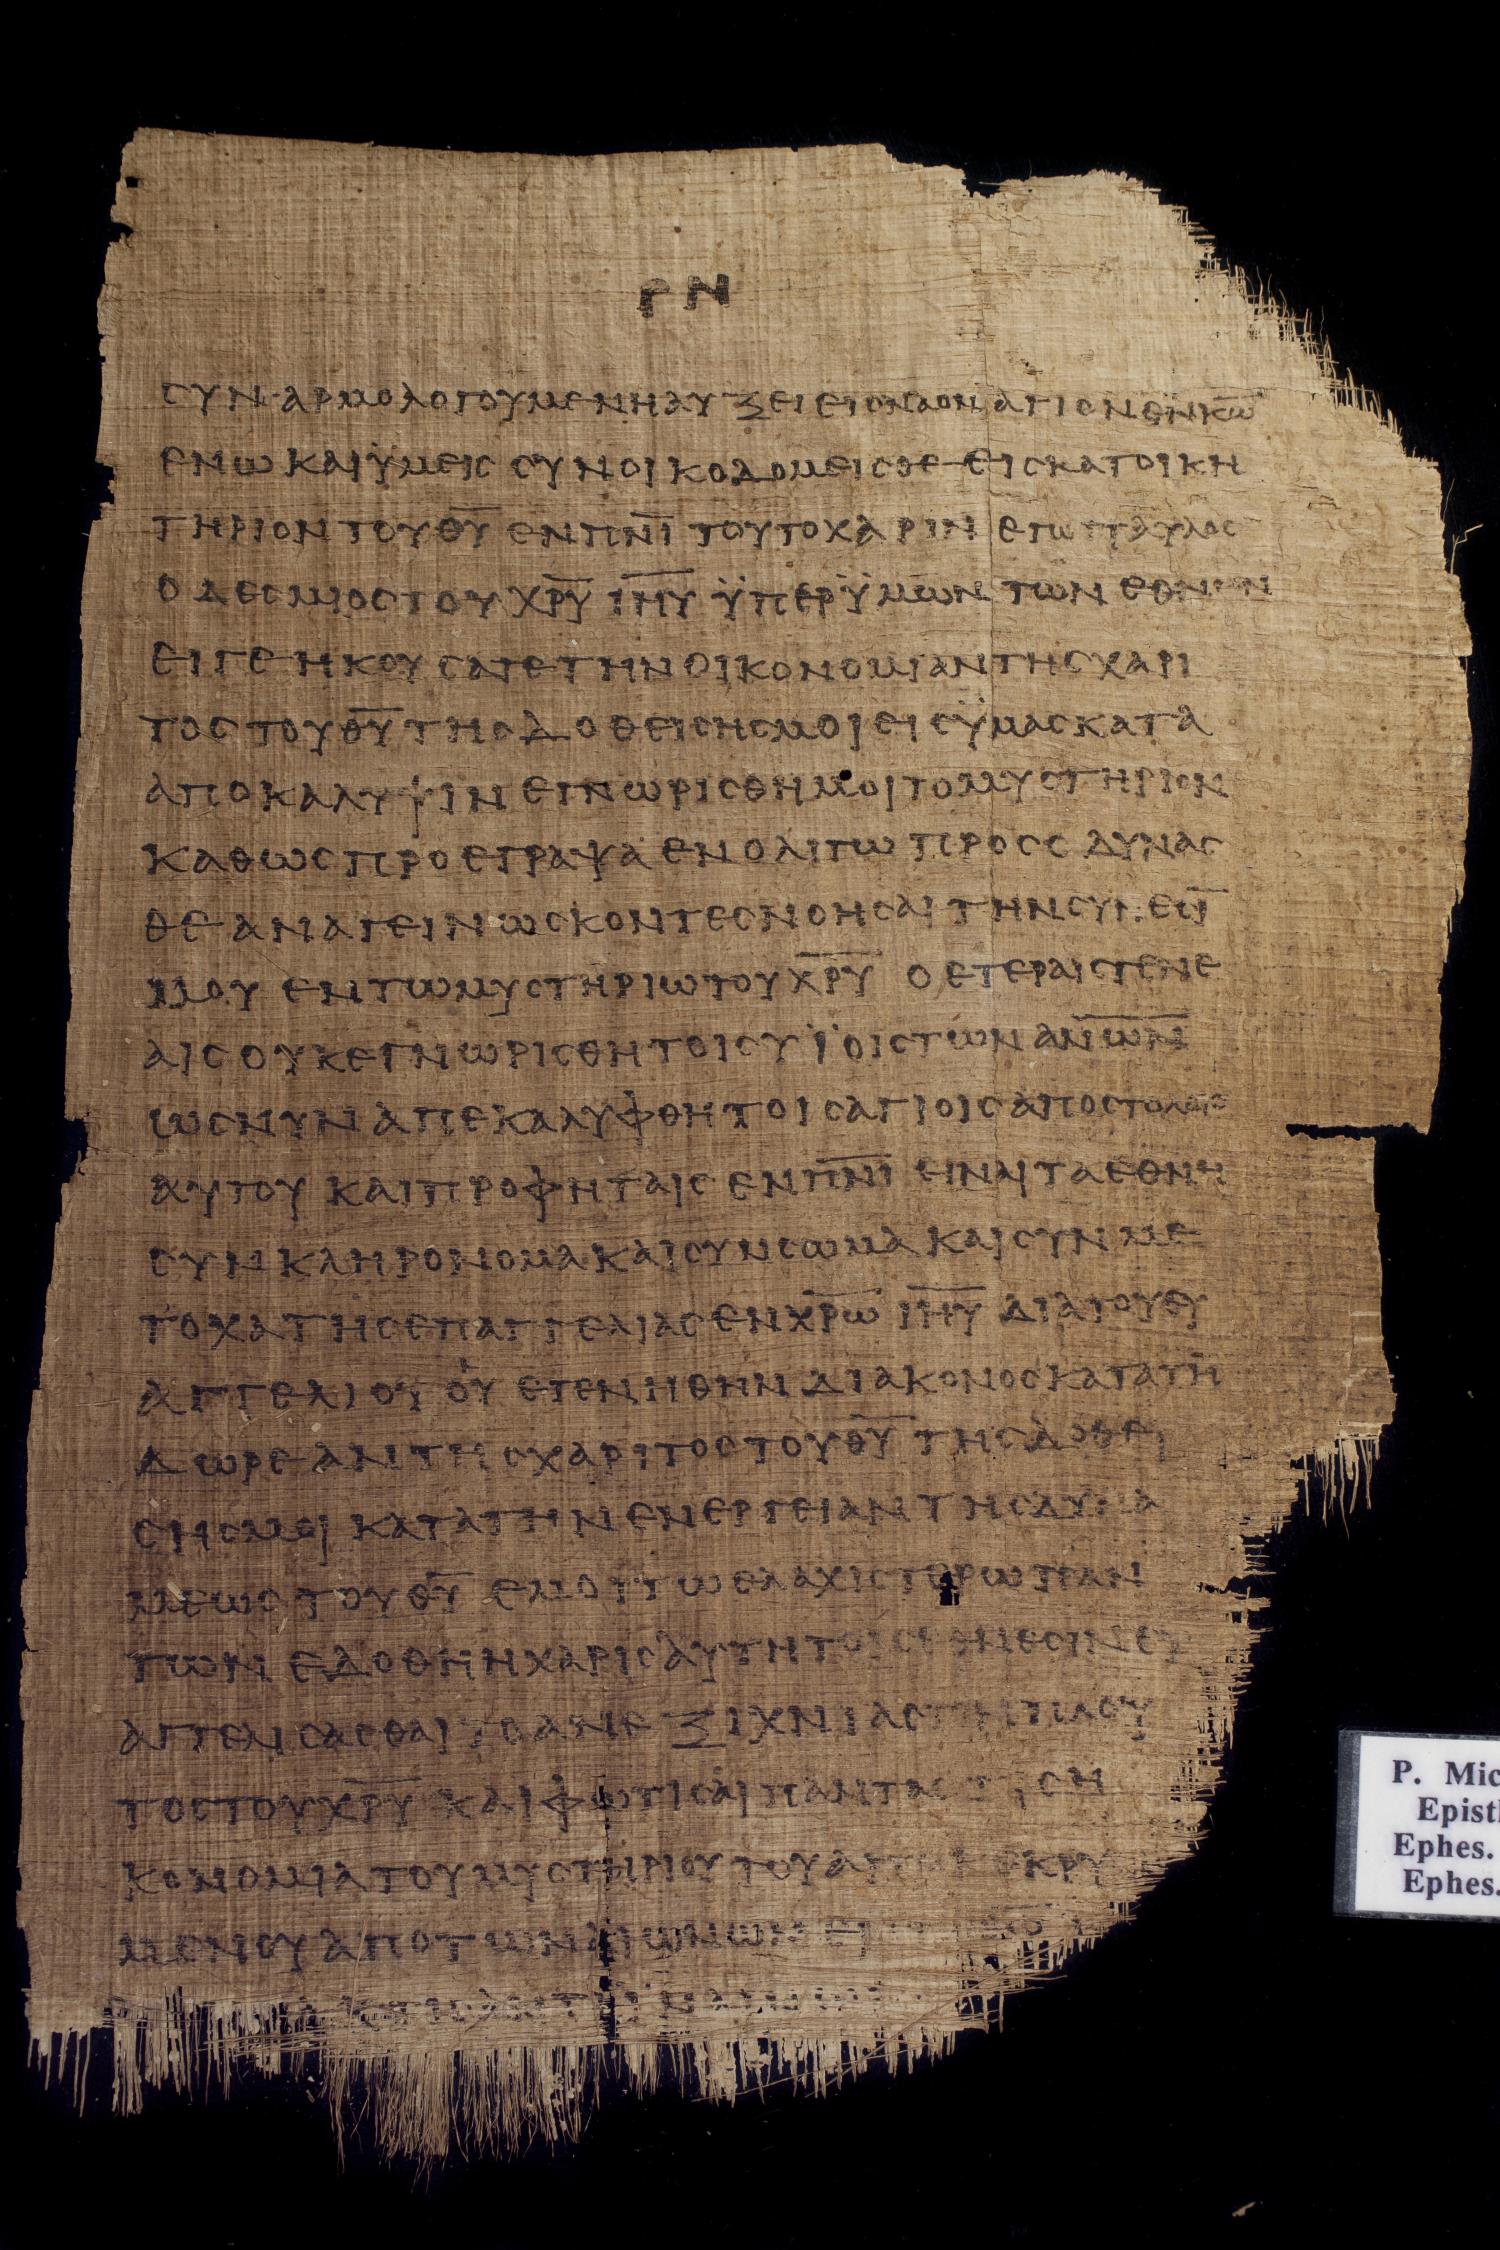 ΡΝ
ϹΥΝΑΡΜΟΛΟΓΟΥΜΕΝΗΑΥΞΕΙΕΙϹΝΑΟΝΑΓΙΟΝΕΝΚ̅Ω̅
ΕΝΩΚΑΙΫΜΕΙϹϹΥΝΟΙΚΟΔΟΜΕΙϹΘΕΕΙϹΚΑΤΟΙΚΗ
ΤΗΡΙΟΝΤΟΥΘ̅Υ̅ΕΝΠ̅Ν̅Ι̅ΤΟΥΤΟΧΑΡΙΝΕΓΩΠΑΥΛΟϹ
ΟΔΕϹΜΙΟϹΤΟΥΧ̅Ρ̅Υ̅Ι̅Η̅Υ̅ΫΠΕΡΫΜΩΝΤΩΝΕΘΝΩΝ
ΕΙΓΕΗΚΟΥϹΑΤΕΤΗΝΟΙΚΟΝΟΜΙΑΝΤΗϹΧΑΡΙ
ΤΟϹΤΟΥΘ̅Υ̅ΤΗϹΔΟΘΕΙϹΗϹΜΟΙΕΙϹΫΜΑϹΚΑΤΑ
ΑΠΟΚΑΛΥΨΙΝΕΓΝΩΡΙϹΘΗΜΟΙΤΟΜΥϹΤΗΡΙΟΝ
ΚΑΘΩϹΠΡΟΕΓΡΑΨΑΕΝΟΛΙΓΩΠΡΟϹϹΔΥΝΑϹ
ΘΕΑΝΑΓΕΙΝΩϹΚΟΝΤΕϹΝΟΗϹΑΙΤΗΝϹΥΝΕϹΙ̅
ΜΟΥΕΝΤΩΜΥϹΤΗΡΙΩΤΟΥΧ̅Ρ̅Υ̅ΟΕΤΕΡΑΙϹΓΕΝΕ
ΑΙϹΟΥΚΕΓΝΩΡΙϹΘΗΤΟΙϹΥΪΟΙϹΤΩΝΑ̅Ν̅Ω̅Ν̅
ΩϹΝΥΝΑΠΕΚΑΛΥΦΘΗΤΟΙϹΑΓΙΟΙϹΑΠΟϹΤΟΛΟΙϹ
ΑΥΤΟΥΚΑΙΠΡΟΦΗΤΑΙϹΕΝΠ̅Ν̅Ι̅ΕΙΝΑΙΤΑΕΘΝΗ
ϹΥΝΚΛΗΡΟΝΟΜΑΚΑΙϹΥΝϹΩΜΑΚΑΙϹΥΝΜΕ
ΤΟΧΑΤΗϹΕΠΑΓΓΕΛΙΑϹΕΝΧ̅Ρ̅Ω̅Ι̅Η̅Υ̅ΔΙΑΤΟΥΕΥ
ΑΓΓΕΛΙΟΥΟΥΕΓΕΝΗΘΗΝΔΙΑΚΟΝΟϹΚΑΤΑΤΗ̅
ΔΩΡΕΑΝΤΗϹΧΑΡΙΤΟϹΤΟΥΘ̅Υ̅ΤΗϹΔΟΘΕΙ
ϹΗϹΜΟΙΚΑΤΑΤΗΝΕΝΕΡΓΕΙΑΝΤΗϹΔΥΝΑ
ΜΕΩϹΤΟΥΘ̅Υ̅ΕΜΟΙΤΩΕΛΑΧΙϹΤΟΡΩΠΑΝ
ΤΩΝΕΔΟΘΗΗΧΑΡΙϹΑΥΤΗΤΟΙϹΕΘΝΕϹΙΝΕΥ
ΑΓΓΕΛΙϹΑϹΘΑΙΤΟΑΝΕΞΙΧΝΙΑϹΤ ΠΛΟΥ
ΤΟϹΤΟΥΧ̅Ρ̅Υ̅ΚΑΙΦΩΤΙϹΑΙΠΑΝΤΑϹ
ΚΟΝΟΜΙΑΤΟΥΜΥϹΤΗΡΙΟΥΤΟΥΑΠ ΚΡΥ
ΜΕΝΟΥΑΠΟΤΩΝΑΙΩΝΩΝΕ